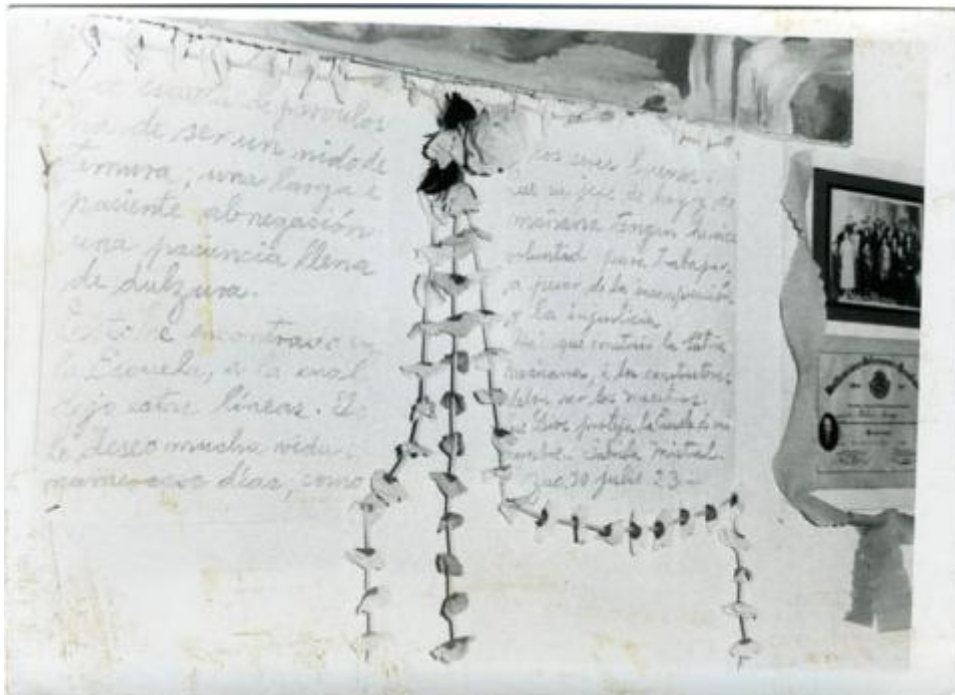 La escuela de párvulos
ha de ser un nido de
ternura, una larga e
paciente abnegación
una paciencia llena
de dulzura.
Esto he encontrado en
la Escuela, a la cual
dejo estas líneas. Yo
le deseo mucha vida i
numerosos días, como
los seres buenos.
de hoy y de
mañana tengan
voluntad para trabajar,
a pesar de la incomprensión
y la injusticia.
la Patria
mexicana, i los constructores
deben ser los maestros.
que Dios proteja la Escuela de mi
nombre. Gabriela Mistral.
30 julio 23